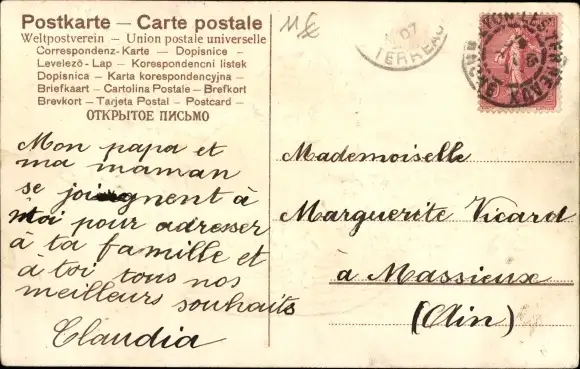 Postkarte — Carte postale
Weltpostverein — Union postale universelle
Correspondenz-Karte — Dopisnice
Levelező-Lap — Korespondencni listek
Dopisnica — Karta korespondencyjna —
Briefkaart — Cartolina Postale — Brefkort
Brevkort — Tarjeta Postal — Postcard —
ОТКРЫТОЕ ПИСЬМО
07
TERREAU
LYON LES TERREAUX
Mon papa et
ma maman
se joignent à
moi pour adresser
à ta famille et
à toi tous nos
meilleurs souhaits
Claudia
Mademoiselle
Marguerite Vicard
à Massieux
(Ain)